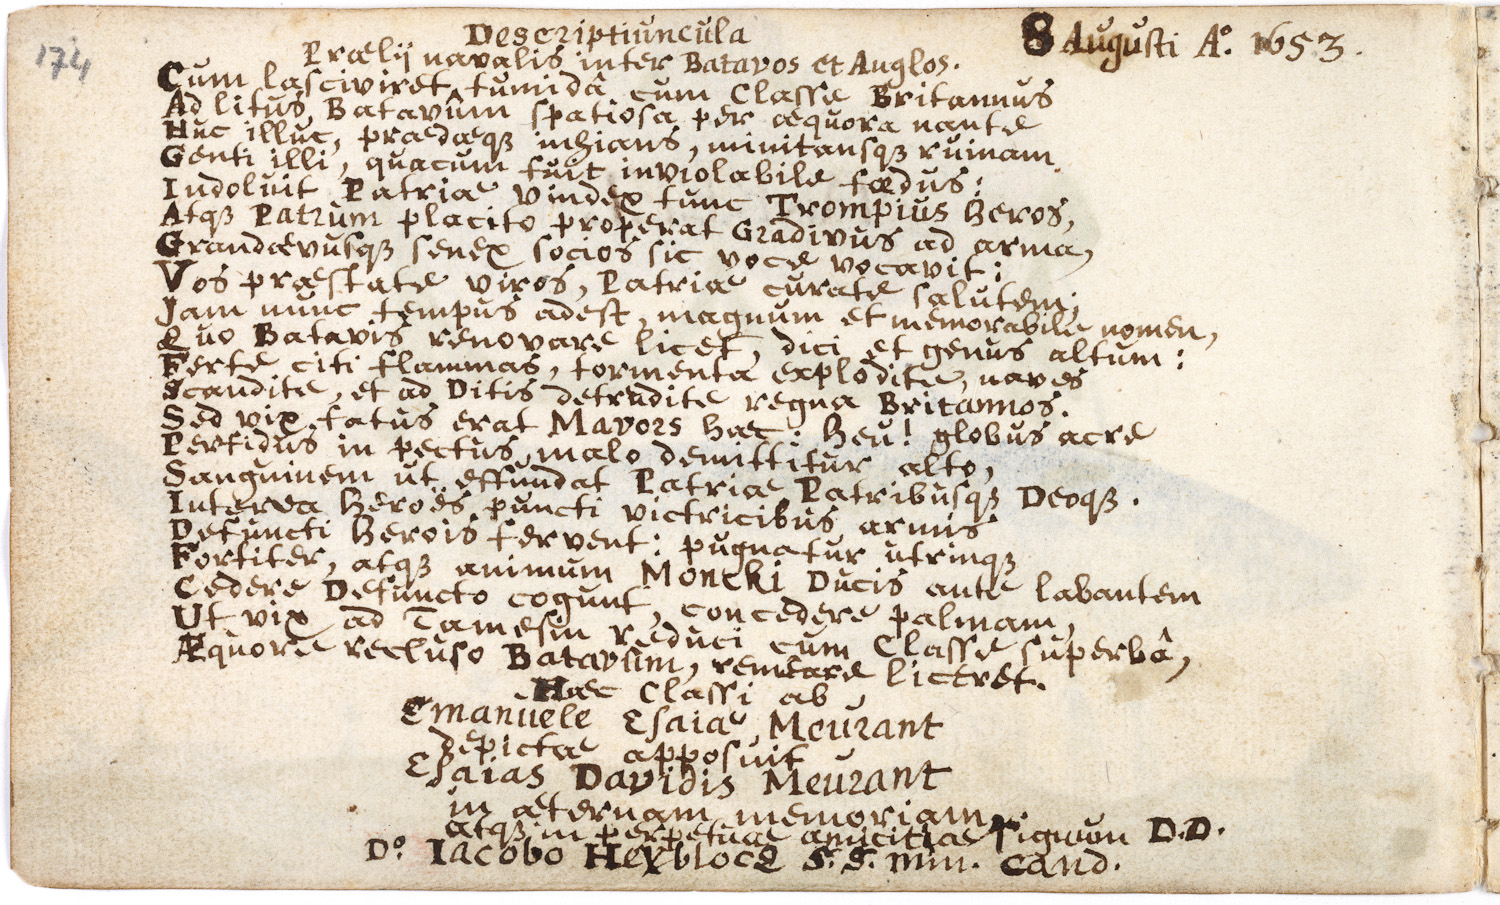 174
Descriptiuncula
8 Augusti Aº. 1653.
Prælij navalis inter Batavos et Anglos.
Cum lasciviret tumidâ cum Classe Britannus
Ad litus Batavûm spatiosa per æquora nante
Huc illuc, prædæqꝫ inhians, minitansqꝫ ruinam
Genti illi, quacum fuit inviolabile fœdus:
Indoluit Patriæ vindex tunc Trompius heros,
Atqꝫ Patrum placito properat Gradivus ad arma,
Grandævusqꝫ senex socios sic voce vocavit:
Vos præstate viros, Patriæ curate salutem;
Jam nunc tempus adest, magnum et memorabile nomen,
Quo Batavis renovare licet, dici et genus altum:
Ferte citi flammas, tormenta explodite, naves
Scandite, et ad Ditis detrudite regna Britannos.
Sed vix fatus erat Mavors hæc: heu! globus acre
Perfidus in pectus malo demittitur alto,
Sanguinem ut effundat Patriæ Patribusqꝫ Deoqꝫ.
Interea heroës puncti victricibus armis
Defuncti herois fervent: pugnatur utrinqꝫ
Fortiter, atqꝫ animum Moncki Ducis ante labantem
Cedere Defuncto cogunt, concedere palmam,
Ut vix ad Tamesin reduci cum Classe superbâ,
Æquore recluso Batavûm, remeare liceret.
Hæc Classi ab
Emanuele Esaiæ Meurant
depictæ apposuit
Esaias Davidis Meurant
in æternam memoriam
atqꝫ in perpetuæ amicitiæ Pignum D.D.
Dº. Iacobo Heyblocq S.S. Min. Cand.